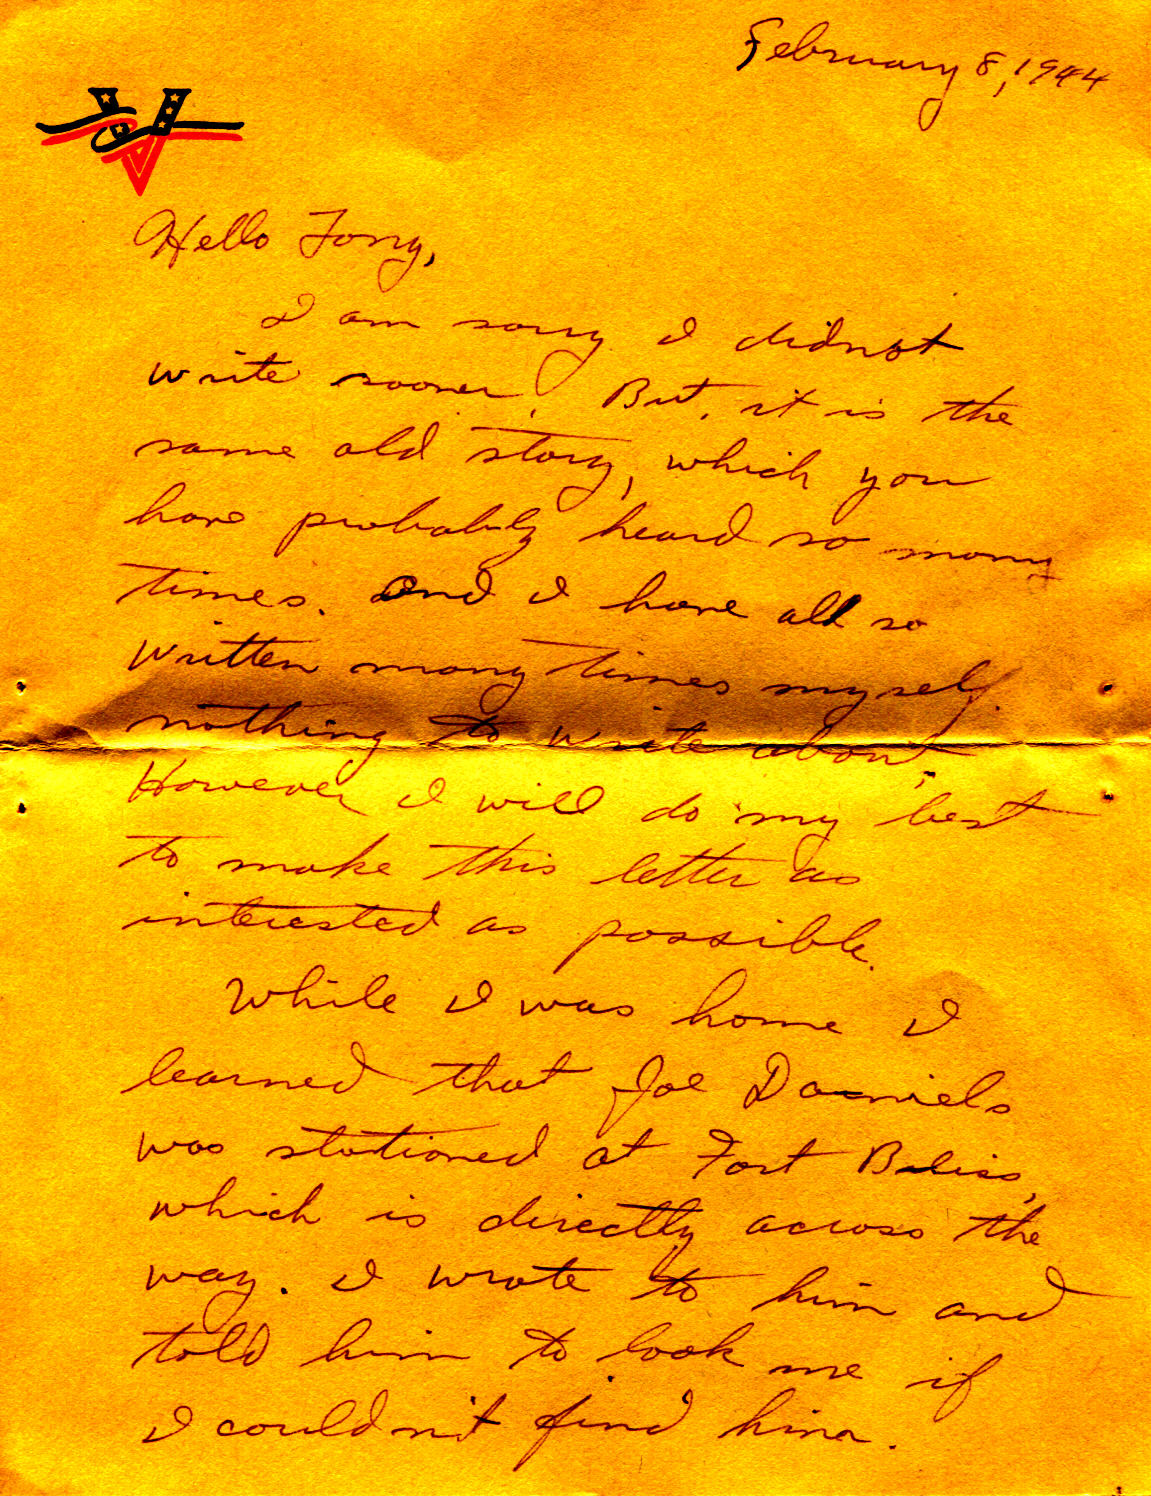 February 8, 1944
Hello Tony,
I am sorry I didnot
write sooner. But, it is the
same old story, which you
have probably heard so many
times. And I have all so
written many times myself.
nothing to write about,
However I will do my best
to make this letter as
interested as possible.
While I was home I
learned that Joe Daniels
was stationed at Fort Bliss,
which is directly across the
way. I wrote to him and
told him to look me if
I couldn't find him.